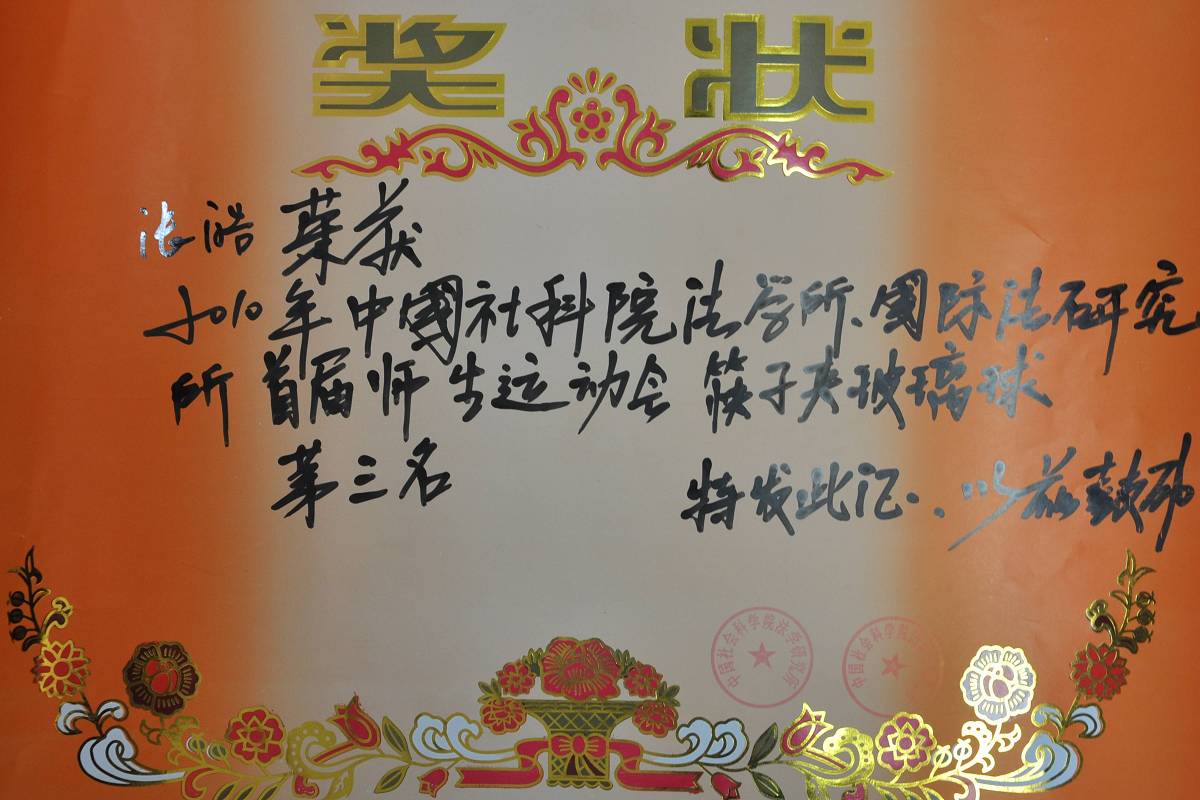 奖状
张浩 荣获
2010年中國社科院法学所、國际法研究
所首届师生运动会 筷子夹玻璃球
第三名 特发此记、以兹鼓励
中国社会科学院法学研究所
中国社会科学院